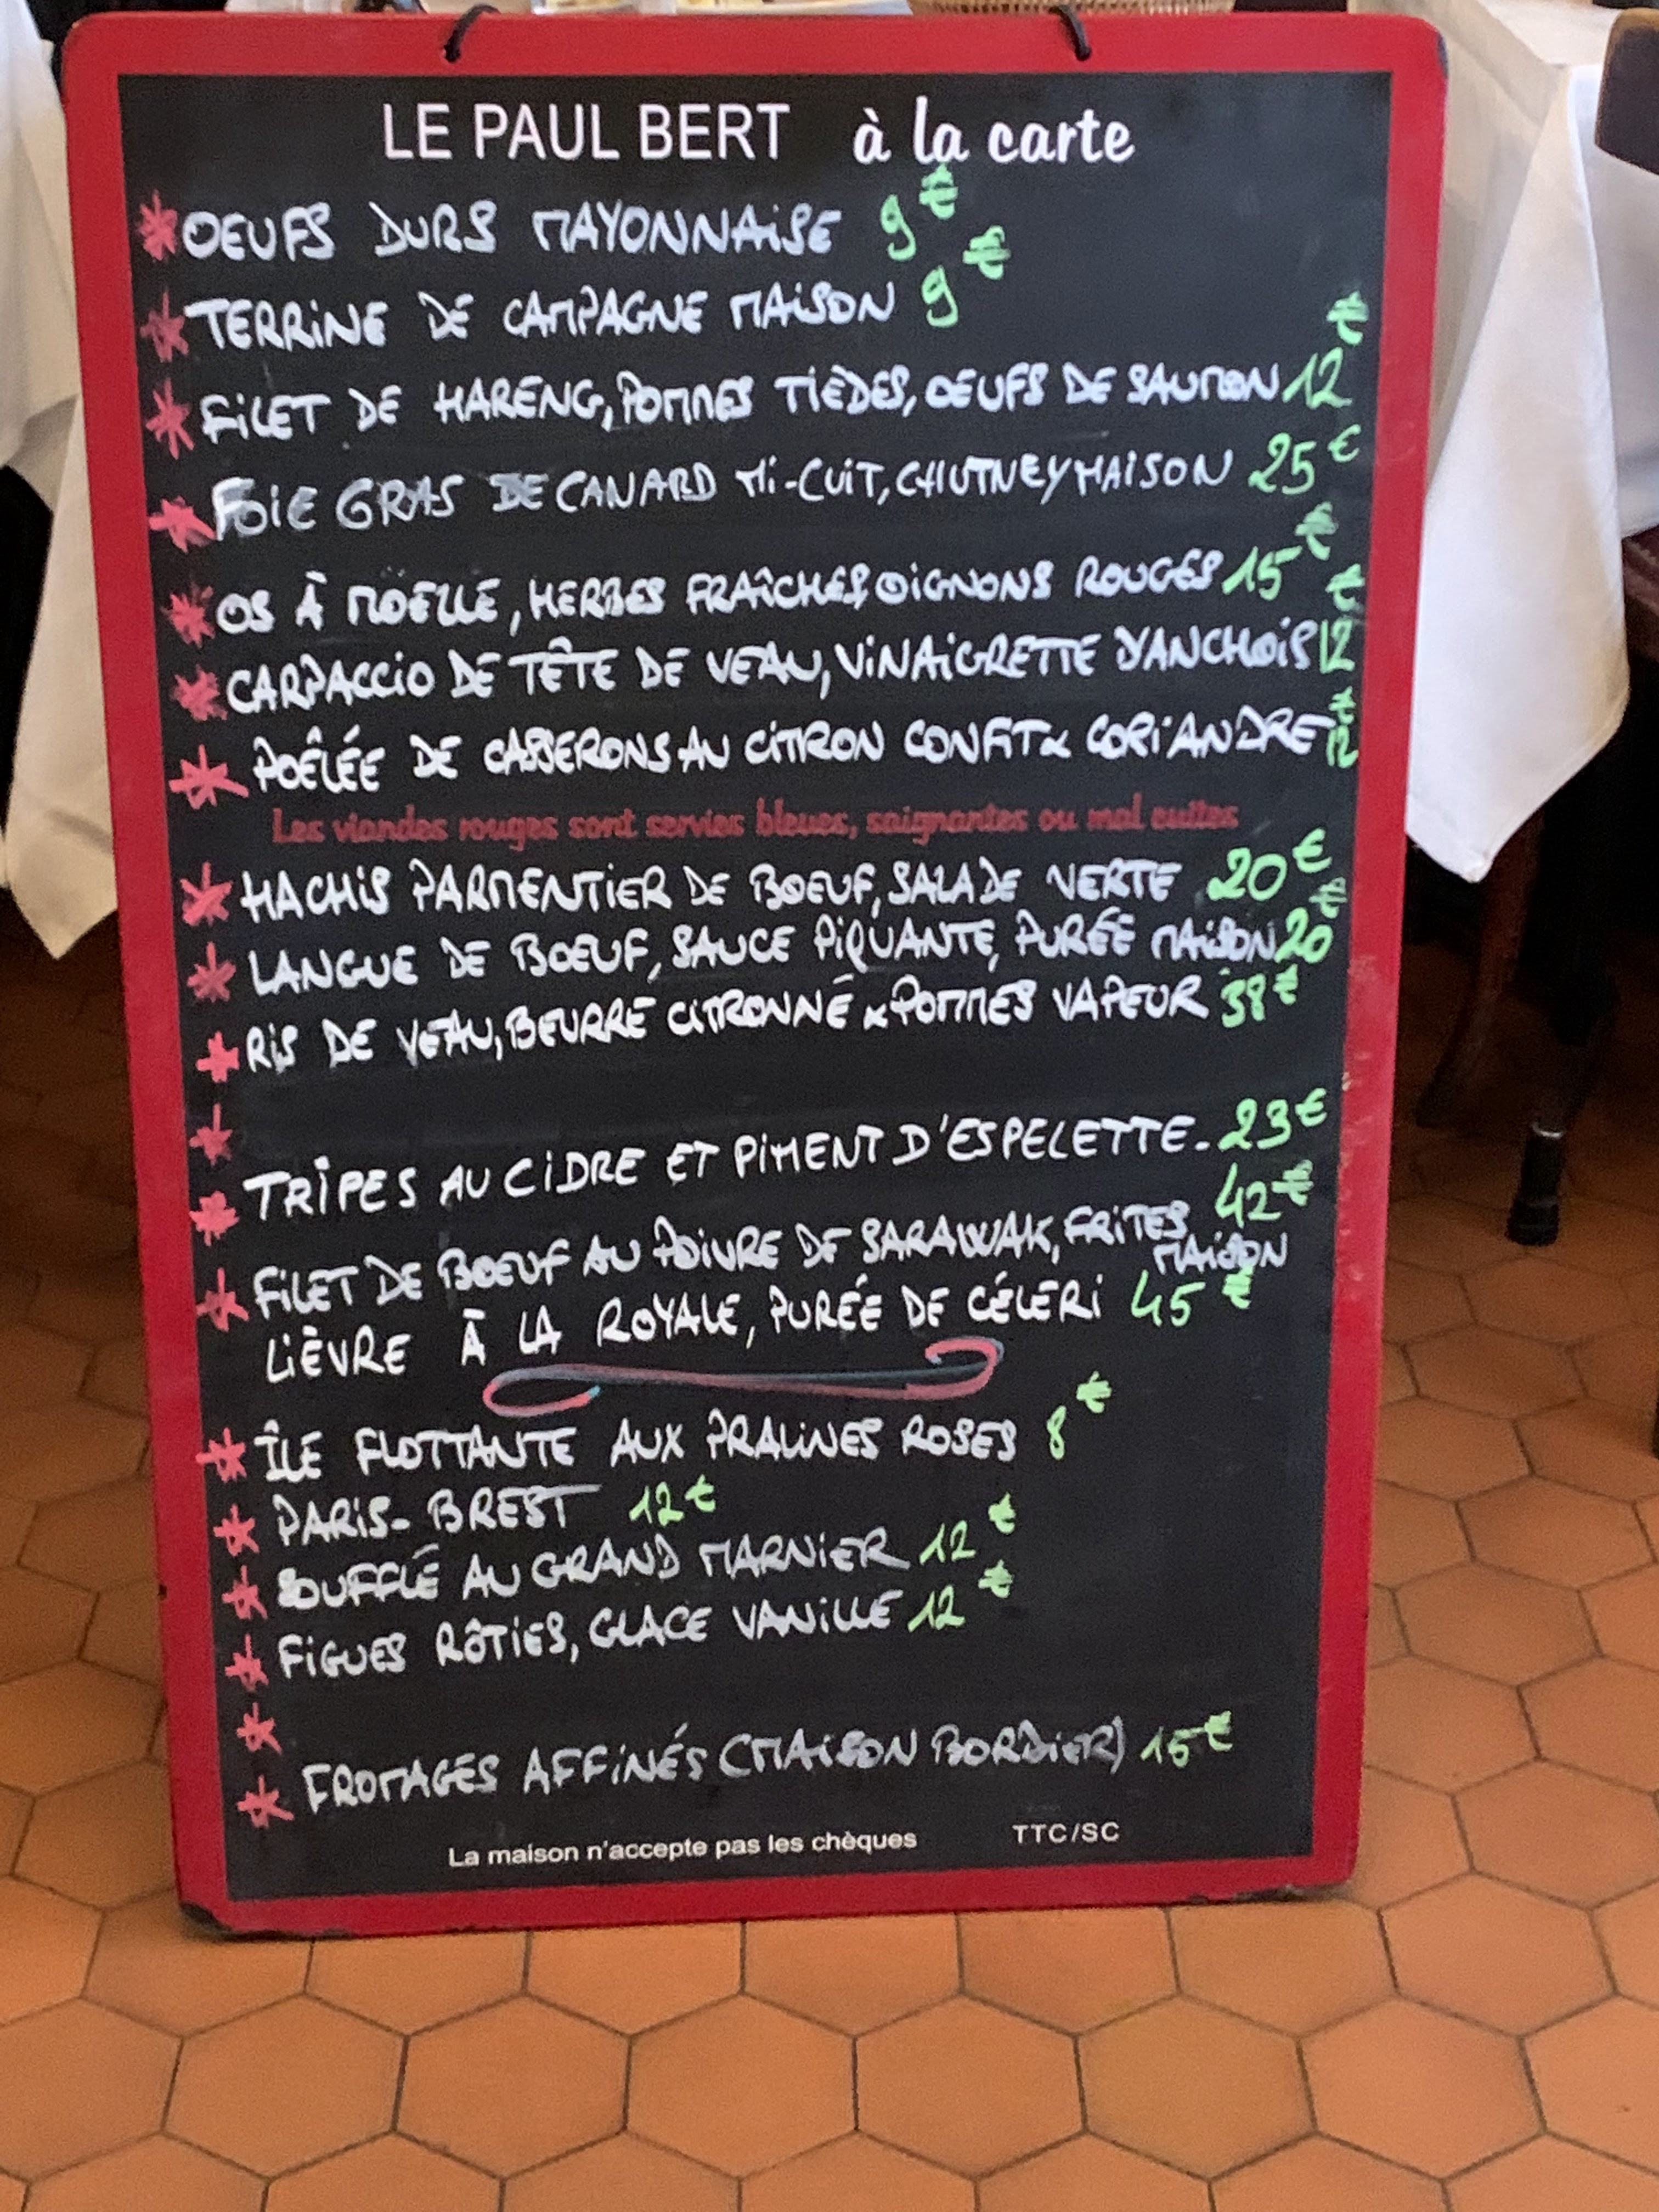 LE PAUL BERT à la carte
* OEUFS DURS MAYONNAISE 9€
* TERRINE DE CAMPAGNE MAISON 9€
* FILET DE HARENG, POMMES TIÈDES, OEUFS DE SAUMON 12€
* FOIE GRAS DE CANARD MI-CUIT, CHUTNEY MAISON 25€
* OS À MOËLLE, HERBES FRAÎCHES, OIGNONS ROUGES 15€
* CARPACCIO DE TÊTE DE VEAU, VINAIGRETTE D'ANCHOIS 12€
* POÊLÉE DE CASSERONS AU CITRON CONFIT & CORIANDRE 12€
Les viandes rouges sont servies bleues, saignantes ou mal cuites
* HACHIS PARMENTIER DE BOEUF, SALADE VERTE 20€
* LANGUE DE BOEUF, SAUCE PIQUANTE, PURÉE MAISON 20€
* RIS DE VEAU, BEURRE CITRONNÉ & POMMES VAPEUR 38€
*
* TRIPES AU CIDRE ET PIMENT D'ESPELETTE - 23€
* FILET DE BOEUF AU POIVRE DE SARAWAK, FRITES MAISON 42€
LIÈVRE À LA ROYALE, PURÉE DE CÉLERI 45€
* ÎLE FLOTTANTE AUX PRALINES ROSES 8€
* PARIS-BREST 12€
* SOUFFLÉ AU GRAND MARNIER 12€
* FIGUES RÔTIES, GLACE VANILLE 12€
*
* FROMAGES AFFINÉS (MAISON BORDIER) 15€
La maison n'accepte pas les chèques TTC/SC